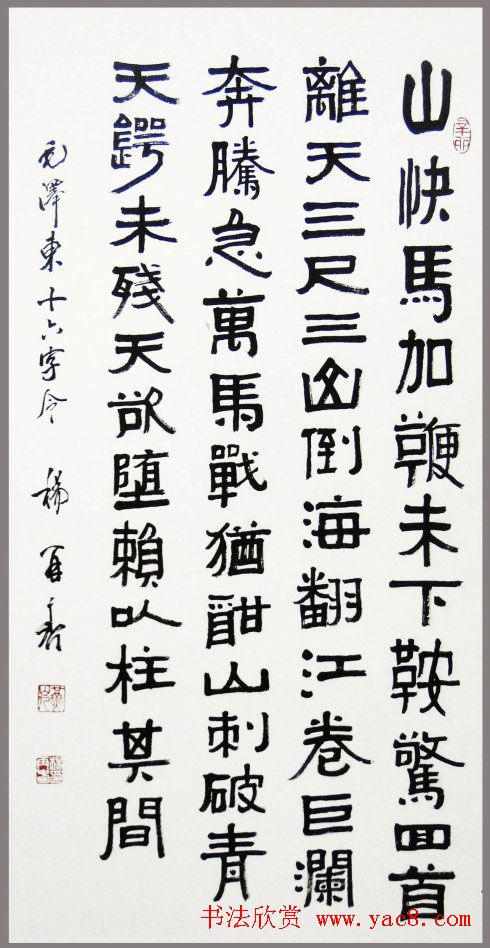 山快馬加鞭未下鞍驚回首
離天三尺三山倒海翻江卷巨瀾
奔騰急萬馬戰猶酣山刺破青
天鍔未殘天欲堕賴以柱其間
毛澤東十六字令 楊再春
辛卯
书法欣赏 www.yac8.com